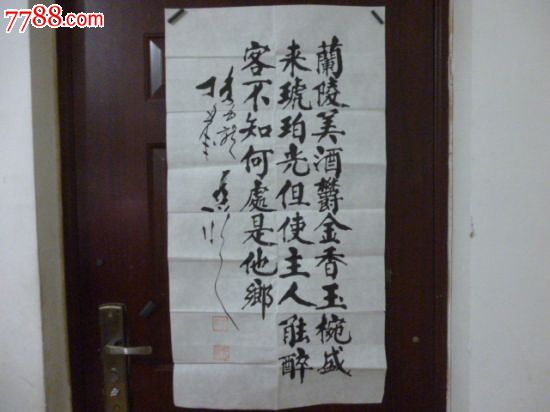 7788.com
蘭陵美酒欝金香玉椀盛
来琥珀光但使主人能醉
客不知何處是他鄉